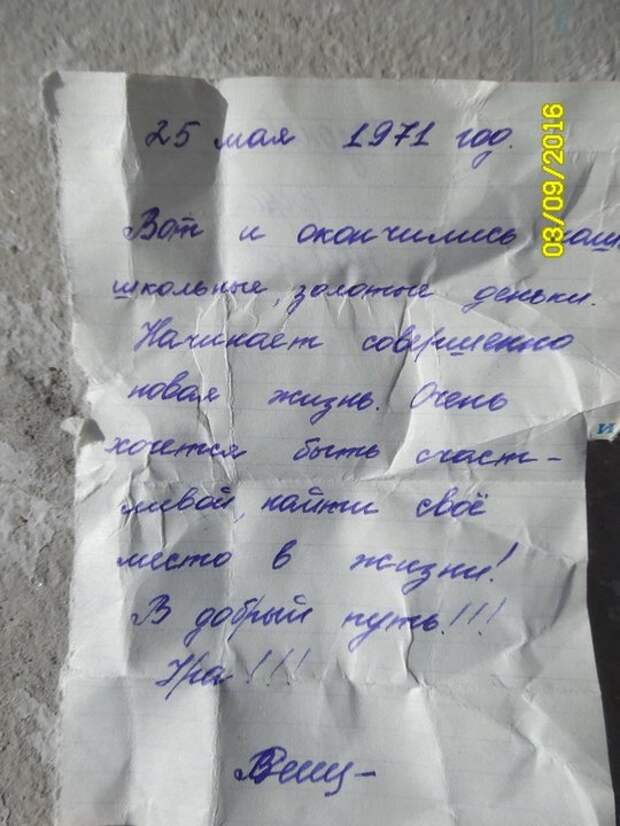 25 мая 1971 год.
03/09/2016
Вот и окончились наш
школьные, золотые деньки.
Начинает совершенно
новая жизнь. Очень
и
хочется быть счаст-
ливой, найти своё
место в жизни!
В добрый путь!!!
Ура!!!